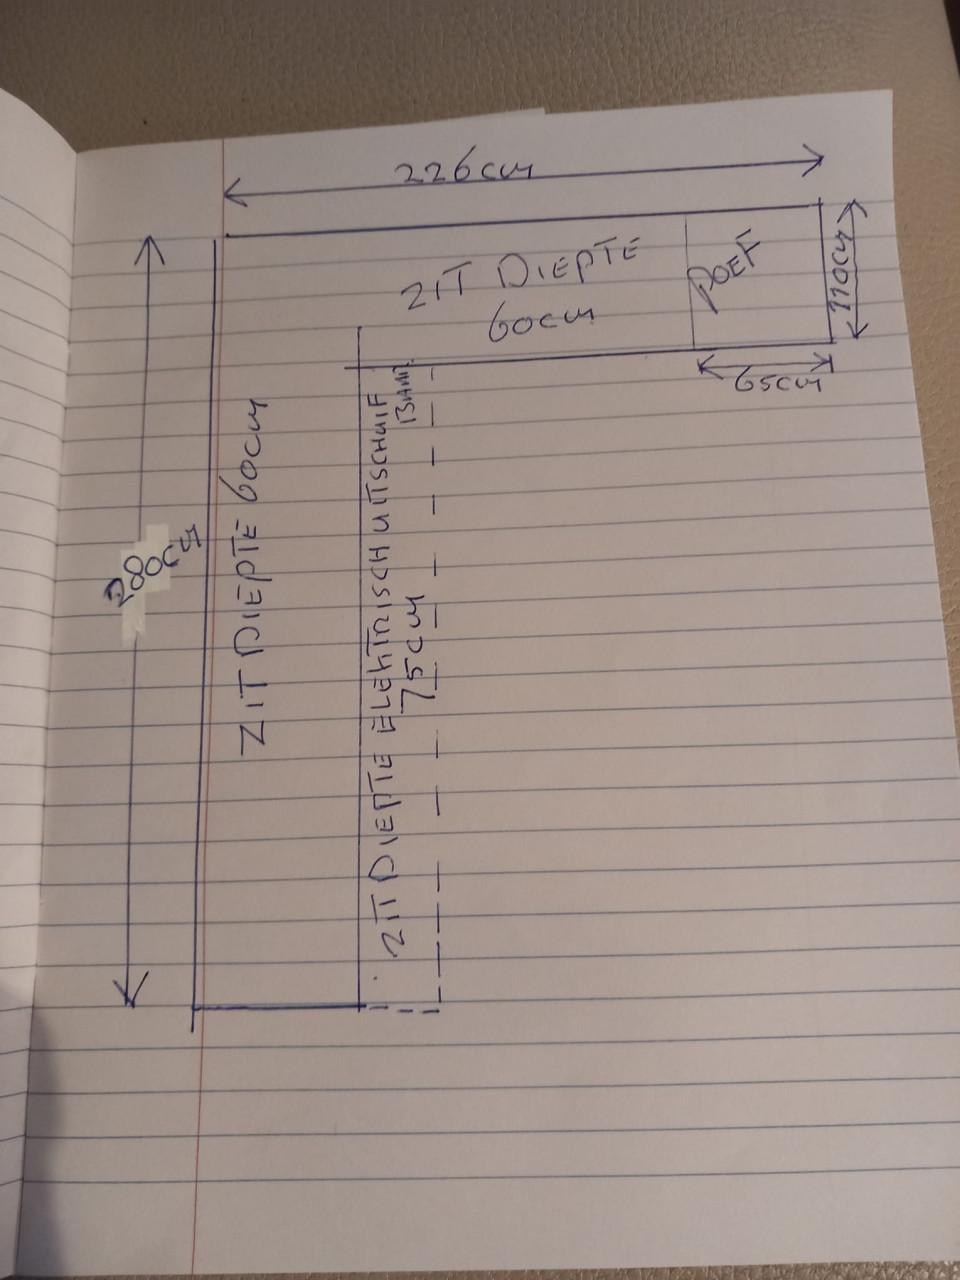 226cm
ZIT DIEPTE
60cm
POEF
110cm
65cm
280cm
ZIT DIEPTE 60cm
ZIT DIEPTE ELEKTRISCH UITSCHUIF
BAAR
75cm